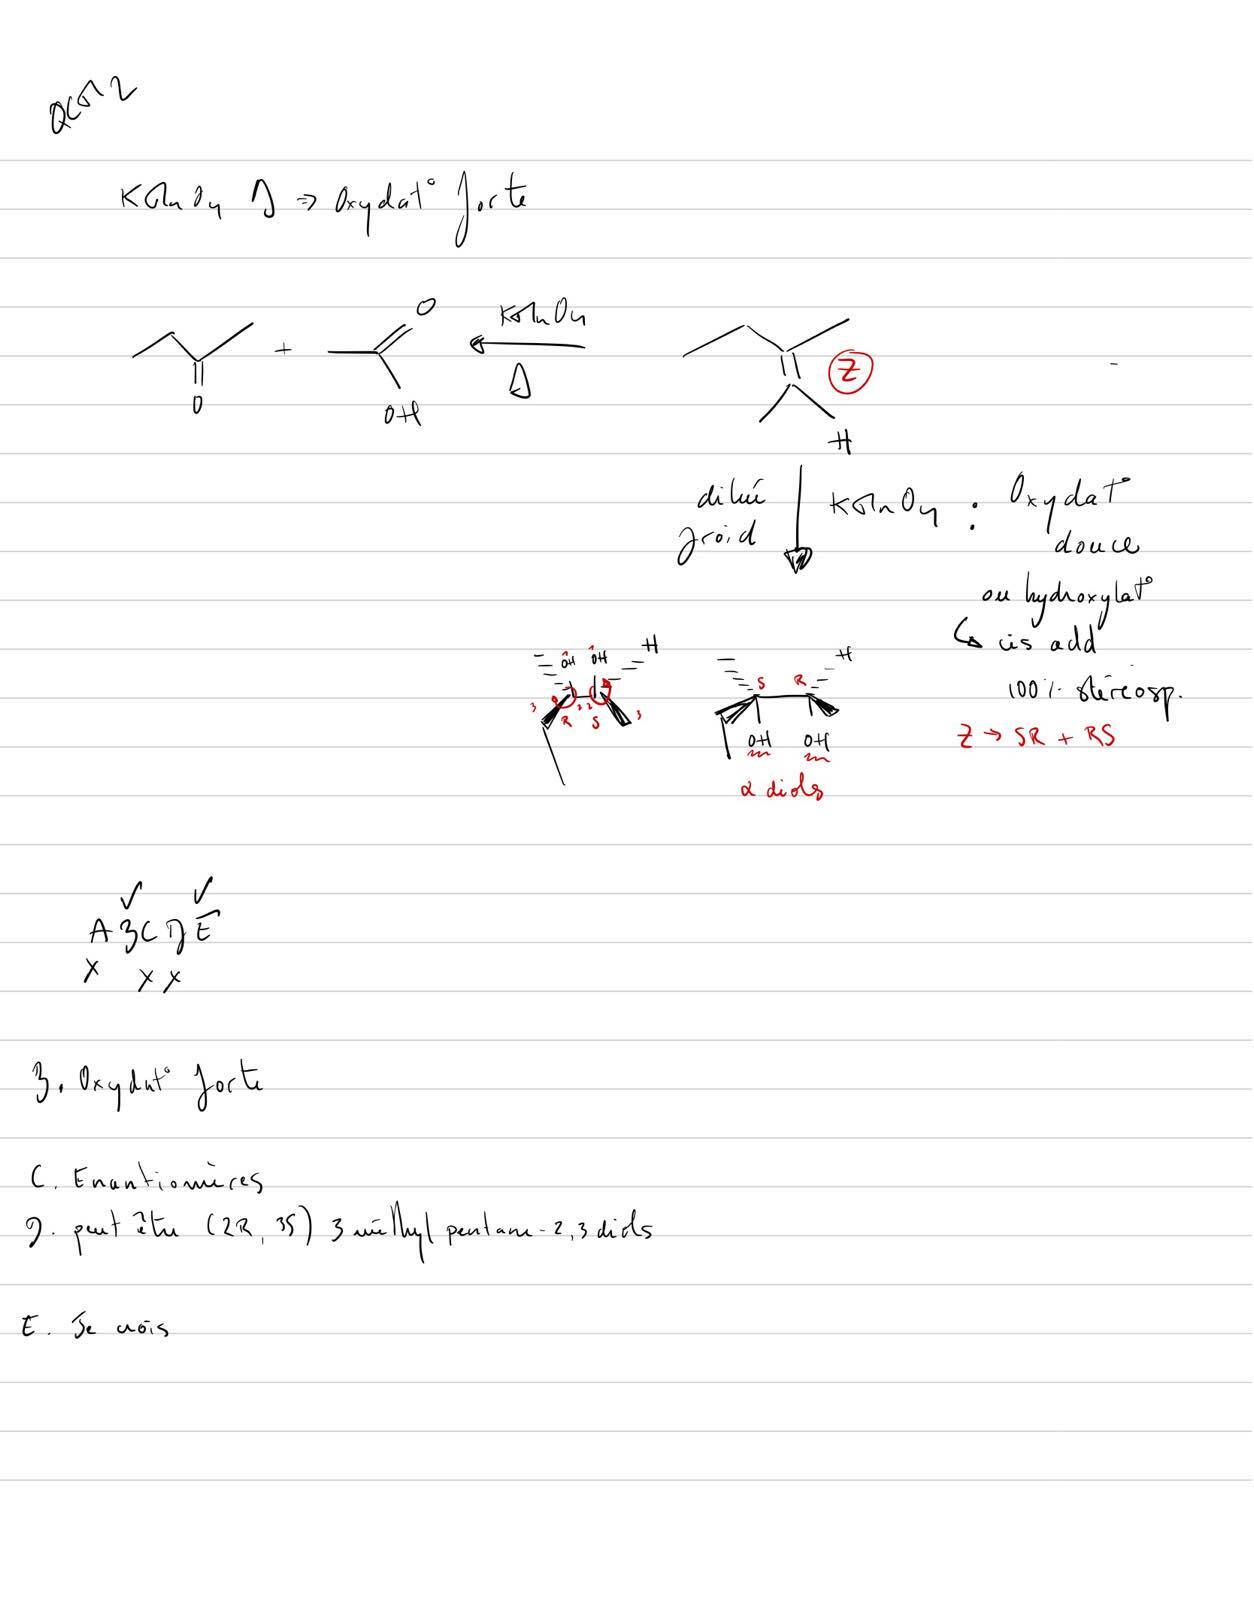 QCM 2
KMnO4 Δ ⇒ Oxydat° forte
KMnO4
Δ
O
+
O
OH
Z
H
dilué
froid
KMnO4 : Oxydat°
douce
ou hydroxylat°
↳ cis add
100% stéréosp.
Z → SR + RS
OH OH H
3 2 2 3
R S
H
S R
OH OH
α diols
✓ ✓
A B C D E
X X X
B. Oxydat° forte
C. Enantiomères
D. peut être (2R, 3S) 3 méthyl pentane-2,3 diols
E. Je crois